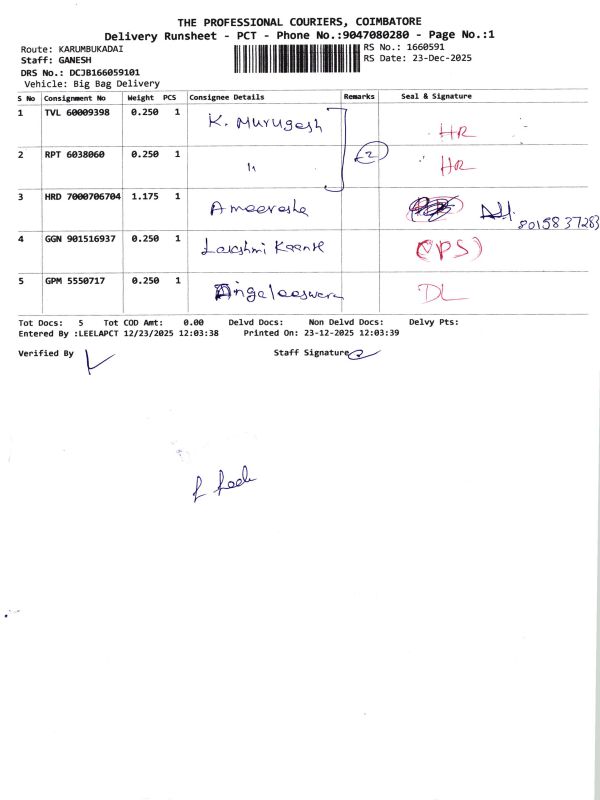 THE PROFESSIONAL COURIERS, COIMBATORE
Delivery Runsheet - PCT - Phone No.:9047080280 - Page No.:1
Route: KARUMBUKADAI
RS No.: 1660591
Staff: GANESH
RS Date: 23-Dec-2025
DRS No.: DCJB166059101
Vehicle: Big Bag Delivery
S No Consignment No Weight PCS Consignee Details Remarks Seal & Signature
1 TVL 60009398 0.250 1 K. Murugesh HR
2 RPT 6038060 0.250 1 " 2 HR
3 HRD 7000706704 1.175 1 Ameerosha 8015837283
4 GGN 901516937 0.250 1 Lakshmi (PS)
5 GPM 5550717 0.250 1 DL
Tot Docs: 5 Tot COD Amt: 0.00 Delvd Docs: Non Delvd Docs: Delvy Pts:
Entered By :LEELAPCT 12/23/2025 12:03:38 Printed On: 23-12-2025 12:03:39
Verified By Staff Signature